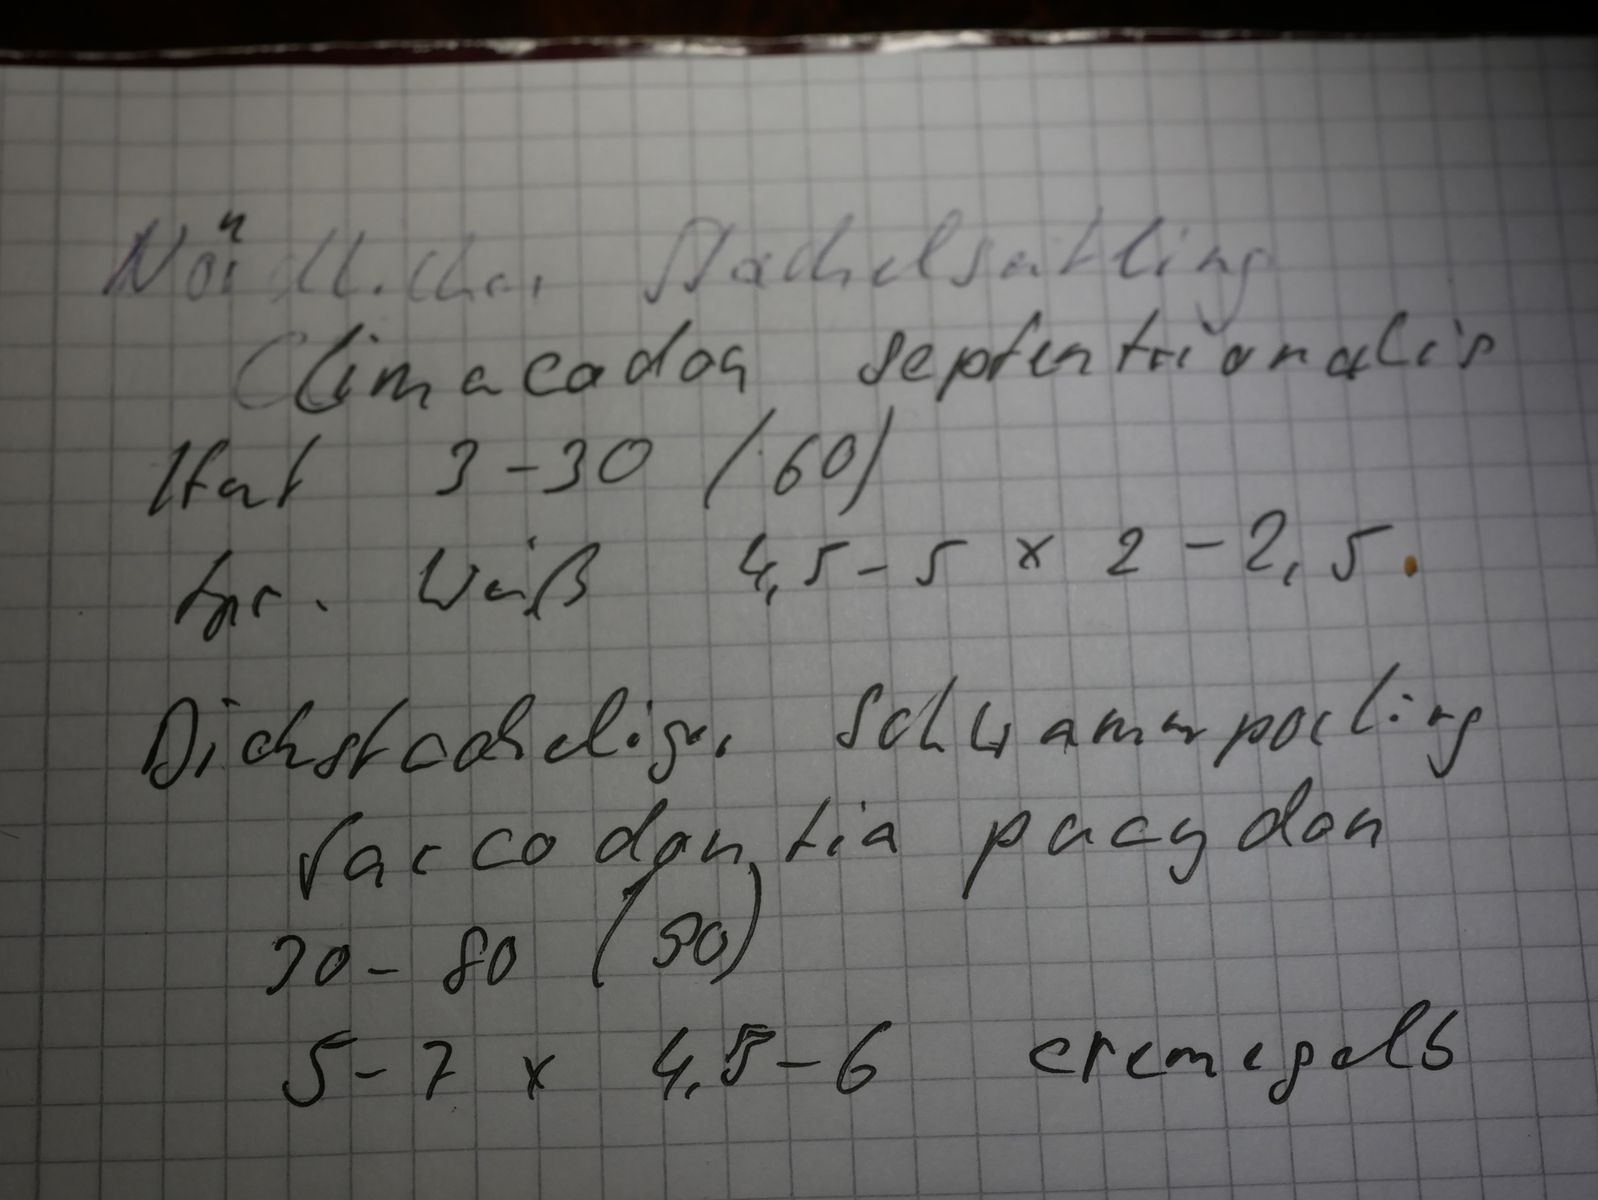 Nördlicher Stachelseitling
Climacodon septentrionalis
Hut 3-30 (60)
Spr. Weiß 4,5-5 x 2-2,5
Dichstachelige Schwammporling
Sarcodontia pacydon
30-80 (90)
5-7 x 4,5-6 cremegelb